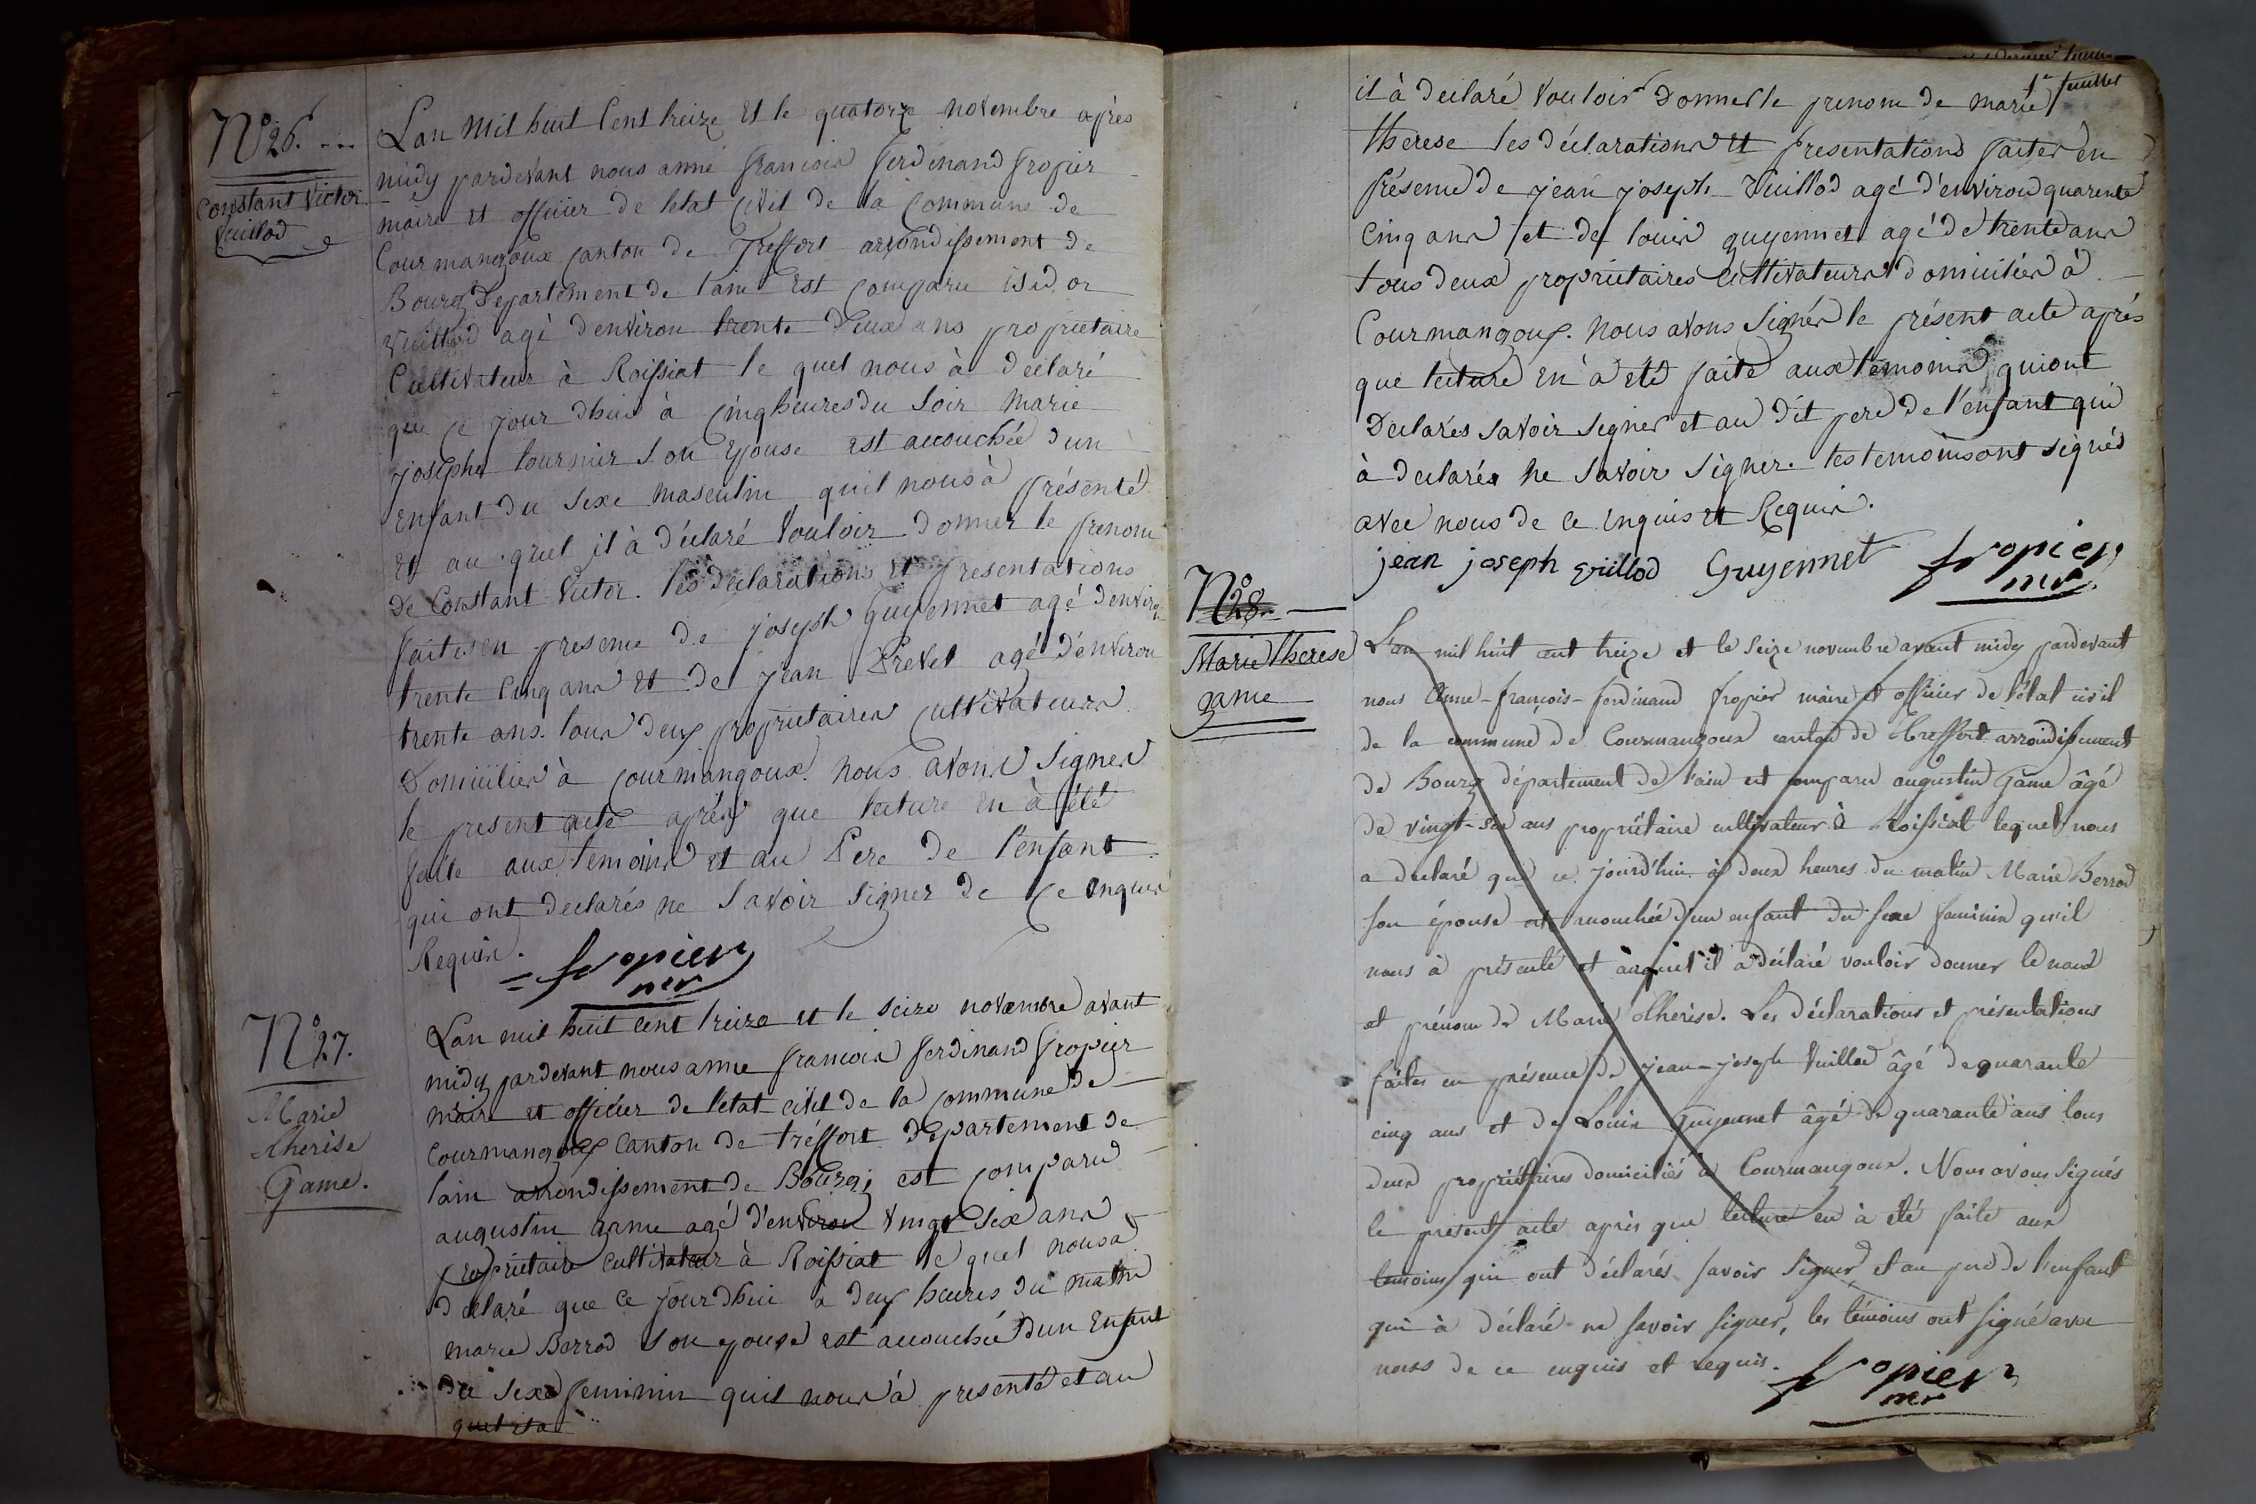 N° 26. ---
Constant Victor
Vuilod
Lan mil huit Cent treize Et le quatorze novembre après
midy pardevant nous anne francois ferdinand fropier
maire et officier de letat Civil de la Commune de
Courmangoux Canton de Treffort arrondissement de
Bourg Departement de lain Est comparu isid or
Vuillod agé denviron trente deux ans proprietaire
Cultivateur à Roissiat le quel nous à declaré
que ce jour dhui à cinq heures du soir marie
josephe tournier son epouse est accouchée dun
Enfant du sexe masculin quil nous à présenté
Et au quel il à déclaré Vouloir donner le prenom
de Constant Victor. les declarations et presentations
faites en presence de joseph guyennet agé denviron
trente cinq ans et de jean Prevet agé d'environ
trente ans. tous deux proprietaires cultivateurs
Domiciliés à courmangoux. nous avons signer
le present acte après que lecture en à été
faite aux temoins et au Pere de l'enfant
qui ont declarés ne savoir signer de ce enquis
Requis.
= fropier
mre
N° 27.
Marie
therèse
Game.
Lan mil huit cent treize et le seize novembre avant
midy pardevant nous anne francois ferdinand fropier
maire et officier de letat civil de la commune de
courmangoux Canton de tréffort departement de
lain arrondissement de Bourg; est comparu
augustin game agé d'environ vingt six ans
proprietaire cultivateur à Roissiat le quel nous a
declaré que ce jour dhui a deux heures du matin
marie Berrod son epouse est accouchée dun Enfant
du sexe feminin quil nous à presenté et au
quel il a
1er feuillet
il à declaré vouloir donner le prenom de marie
therese les déclarations et presentations faites en
présence de jean joseph Vuillod agé d'environ quarente
cinq ans et de louis guyennet agé de trente ans
tous deux proprietaires cultivateurs domiciliés à
Courmangoux. nous avons signés le présent acte après
que lecture en à eté faite aux temoins qui ont
Declarés savoir signer et au dit pere de l'enfant qui
à declarés ne savoir signer. les temoins ont signés
avec nous de ce enquis et Requis.
jean joseph vuillod Guyennet fropier
mre
N° 28.
Marie therese
game
L'an mil huit cent treize et le seize novembre avant midy pardevant
nous Anne-françois-ferdinand fropier maire et officier de l'état civil
de la commune de Courmangoux canton de Treffort arrondissement
de Bourg département de l'ain est comparu augustin Game âgé
de vingt-six ans propriétaire cultivateur à Roissiat lequel nous
a declaré que ce jourd'hui à deux heures du matin Marie Berrod
son épouse est accouchée d'un enfant du sexe feminin qu'il
nous à présenté et auquel il a déclaré vouloir donner le nom
et prénom de Marie therèse. Les déclarations et présentations
faites en présence de jean-joseph Vuillod âgé de quarante
cinq ans et de Louis Guyennet âgé de quarante ans tous
deux propriétaires domiciliés à Courmangoux. Nous avons signés
le present acte après que lecture en à eté faite aux
temoins qui ont déclarés savoir signer, et au pere de l'enfant
qui à déclaré ne savoir signer, les témoins ont signé avec
nous de ce enquis et requis.
fropier
mre